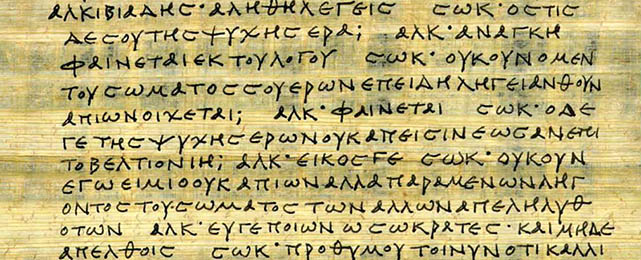 ΑΛΚΙΒΙΑΔΗΣ· ΑΛΗΘΗ ΛΕΓΕΙΣ ϹΩΚ· ΟϹΤΙϹ
ΔΕ ϹΟΥ ΤΗϹ ΨΥΧΗϹ ΕΡΑ; ΑΛΚ· ΑΝΑΓΚΗ
ΦΑΙΝΕΤΑΙ ΕΚ ΤΟΥ ΛΟΓΟΥ ϹΩΚ· ΟΥΚΟΥΝ Ο ΜΕΝ
ΤΟΥ ϹΩΜΑΤΟϹ ϹΟΥ ΕΡΩΝ ΕΠΕΙΔΗ ΛΗΓΕΙ ΑΝΘΟΥΝ
ΑΠΙΩΝ ΟΙΧΕΤΑΙ; ΑΛΚ· ΦΑΙΝΕΤΑΙ ϹΩΚ· Ο ΔΕ
ΓΕ ΤΗϹ ΨΥΧΗϹ ΕΡΩΝ ΟΥΚ ΑΠΕΙϹΙΝ ΕΩϹ ΑΝ ΕΠΙ
ΤΟ ΒΕΛΤΙΟΝ ΙΗ; ΑΛΚ· ΕΙΚΟϹ ΓΕ ϹΩΚ· ΟΥΚΟΥΝ
ΕΓΩ ΕΙΜΙ Ο ΟΥΚ ΑΠΙΩΝ ΑΛΛΑ ΠΑΡΑΜΕΝΩΝ ΛΗΓ
ΟΝΤΟϹ ΤΟΥ ϹΩΜΑΤΟϹ ΤΩΝ ΑΛΛΩΝ ΑΠΕΛΗΛΥΘ
ΟΤΩΝ ΑΛΚ· ΕΥ ΓΕ ΠΟΙΩΝ Ω ϹΩΚΡΑΤΕϹ· ΚΑΙ ΜΗΔΕ
ΑΠΕΛΘΟΙϹ ϹΩΚ· ΠΡΟΘΥΜΟΥ ΤΟΙΝΥΝ ΟΤΙ ΚΑΛΛΙ